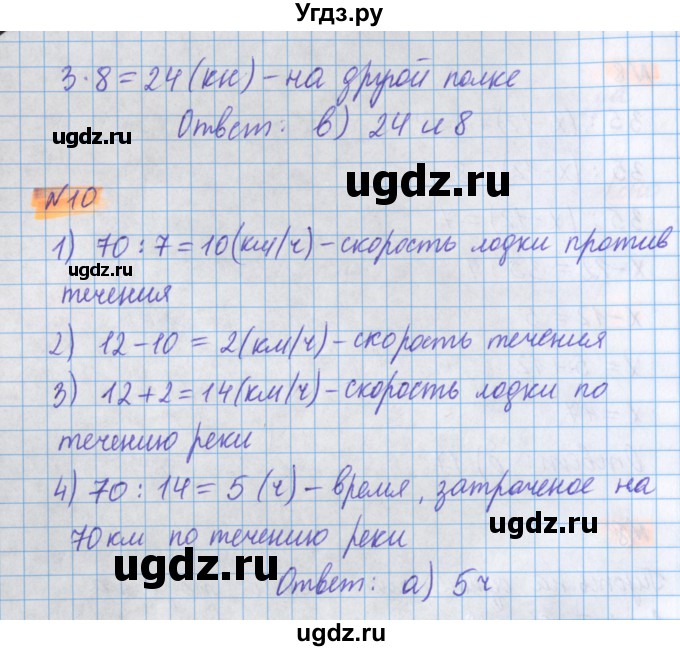 Угдз.ру
3·8=24(кн)-на другой полке
Ответ: в) 24 и 8
ugdz.ru
ugdz.ru
ugdz.ru
№10
1) 70:7=10(км/ч)-скорость лодки против
ugdz.ru
ugdz.ru
течения
2) 12-10=2(км/ч)-скорость течения
ugdz.ru
3) 12+2=14(км/ч)-скорость лодки по
ugdz.ru
ugdz.ru
течению реки
4) 70:14=5(ч)-время, затраченое на
ugdz.ru
70км по течению реки
ugdz.ru
ugdz.ru
Ответ: а) 5ч
ugdz.ru